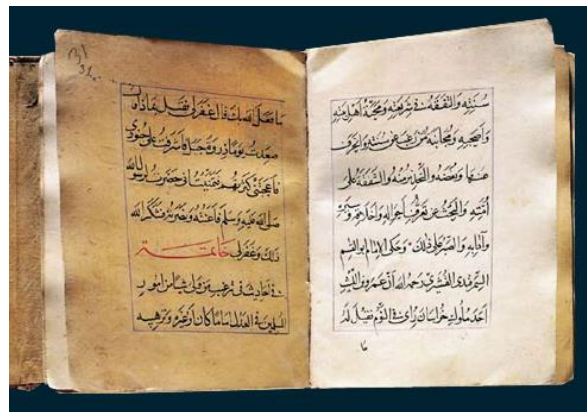 سنته والتفقه في شريعته ومحبة اهل بيته
واصحابه ومجانبة من رغب عن سنته وانحرف
عنها وبغضه والتحذير منه والشفقة على
امته والبحث عن تعرف احواله واخلاقه وسيره
وآدابه والصبر على ذلك وحكى الامام ابو القسم
القشيري رحمه الله ان عمرو بن الليث
احد ملوك خراسان راى في النوم فقيل له
ما
ما فعل الله بك قال غفر لي فقيل بماذا قال
صعدت يوما ذروة جبل فاشرفت على جنودي
فاعجبتني كثرتهم فتمنيت اني حضرت رسول الله
صلى الله عليه وسلم فاعنته ونصرته فشكر الله
ذلك وغفر لي خاتمة
في احاديث في ترغيب من ولي شيا من امور
المسلمين في العدل اماما كان او غيره وترهيبه